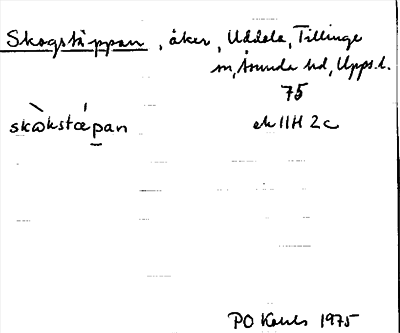 Skogstäppan, åker, Uddela, Tillinge
sn, Åsunda hd, Upps. l.
75
skɷ̀kstǽpan
ek 11H 2c
PO 1975